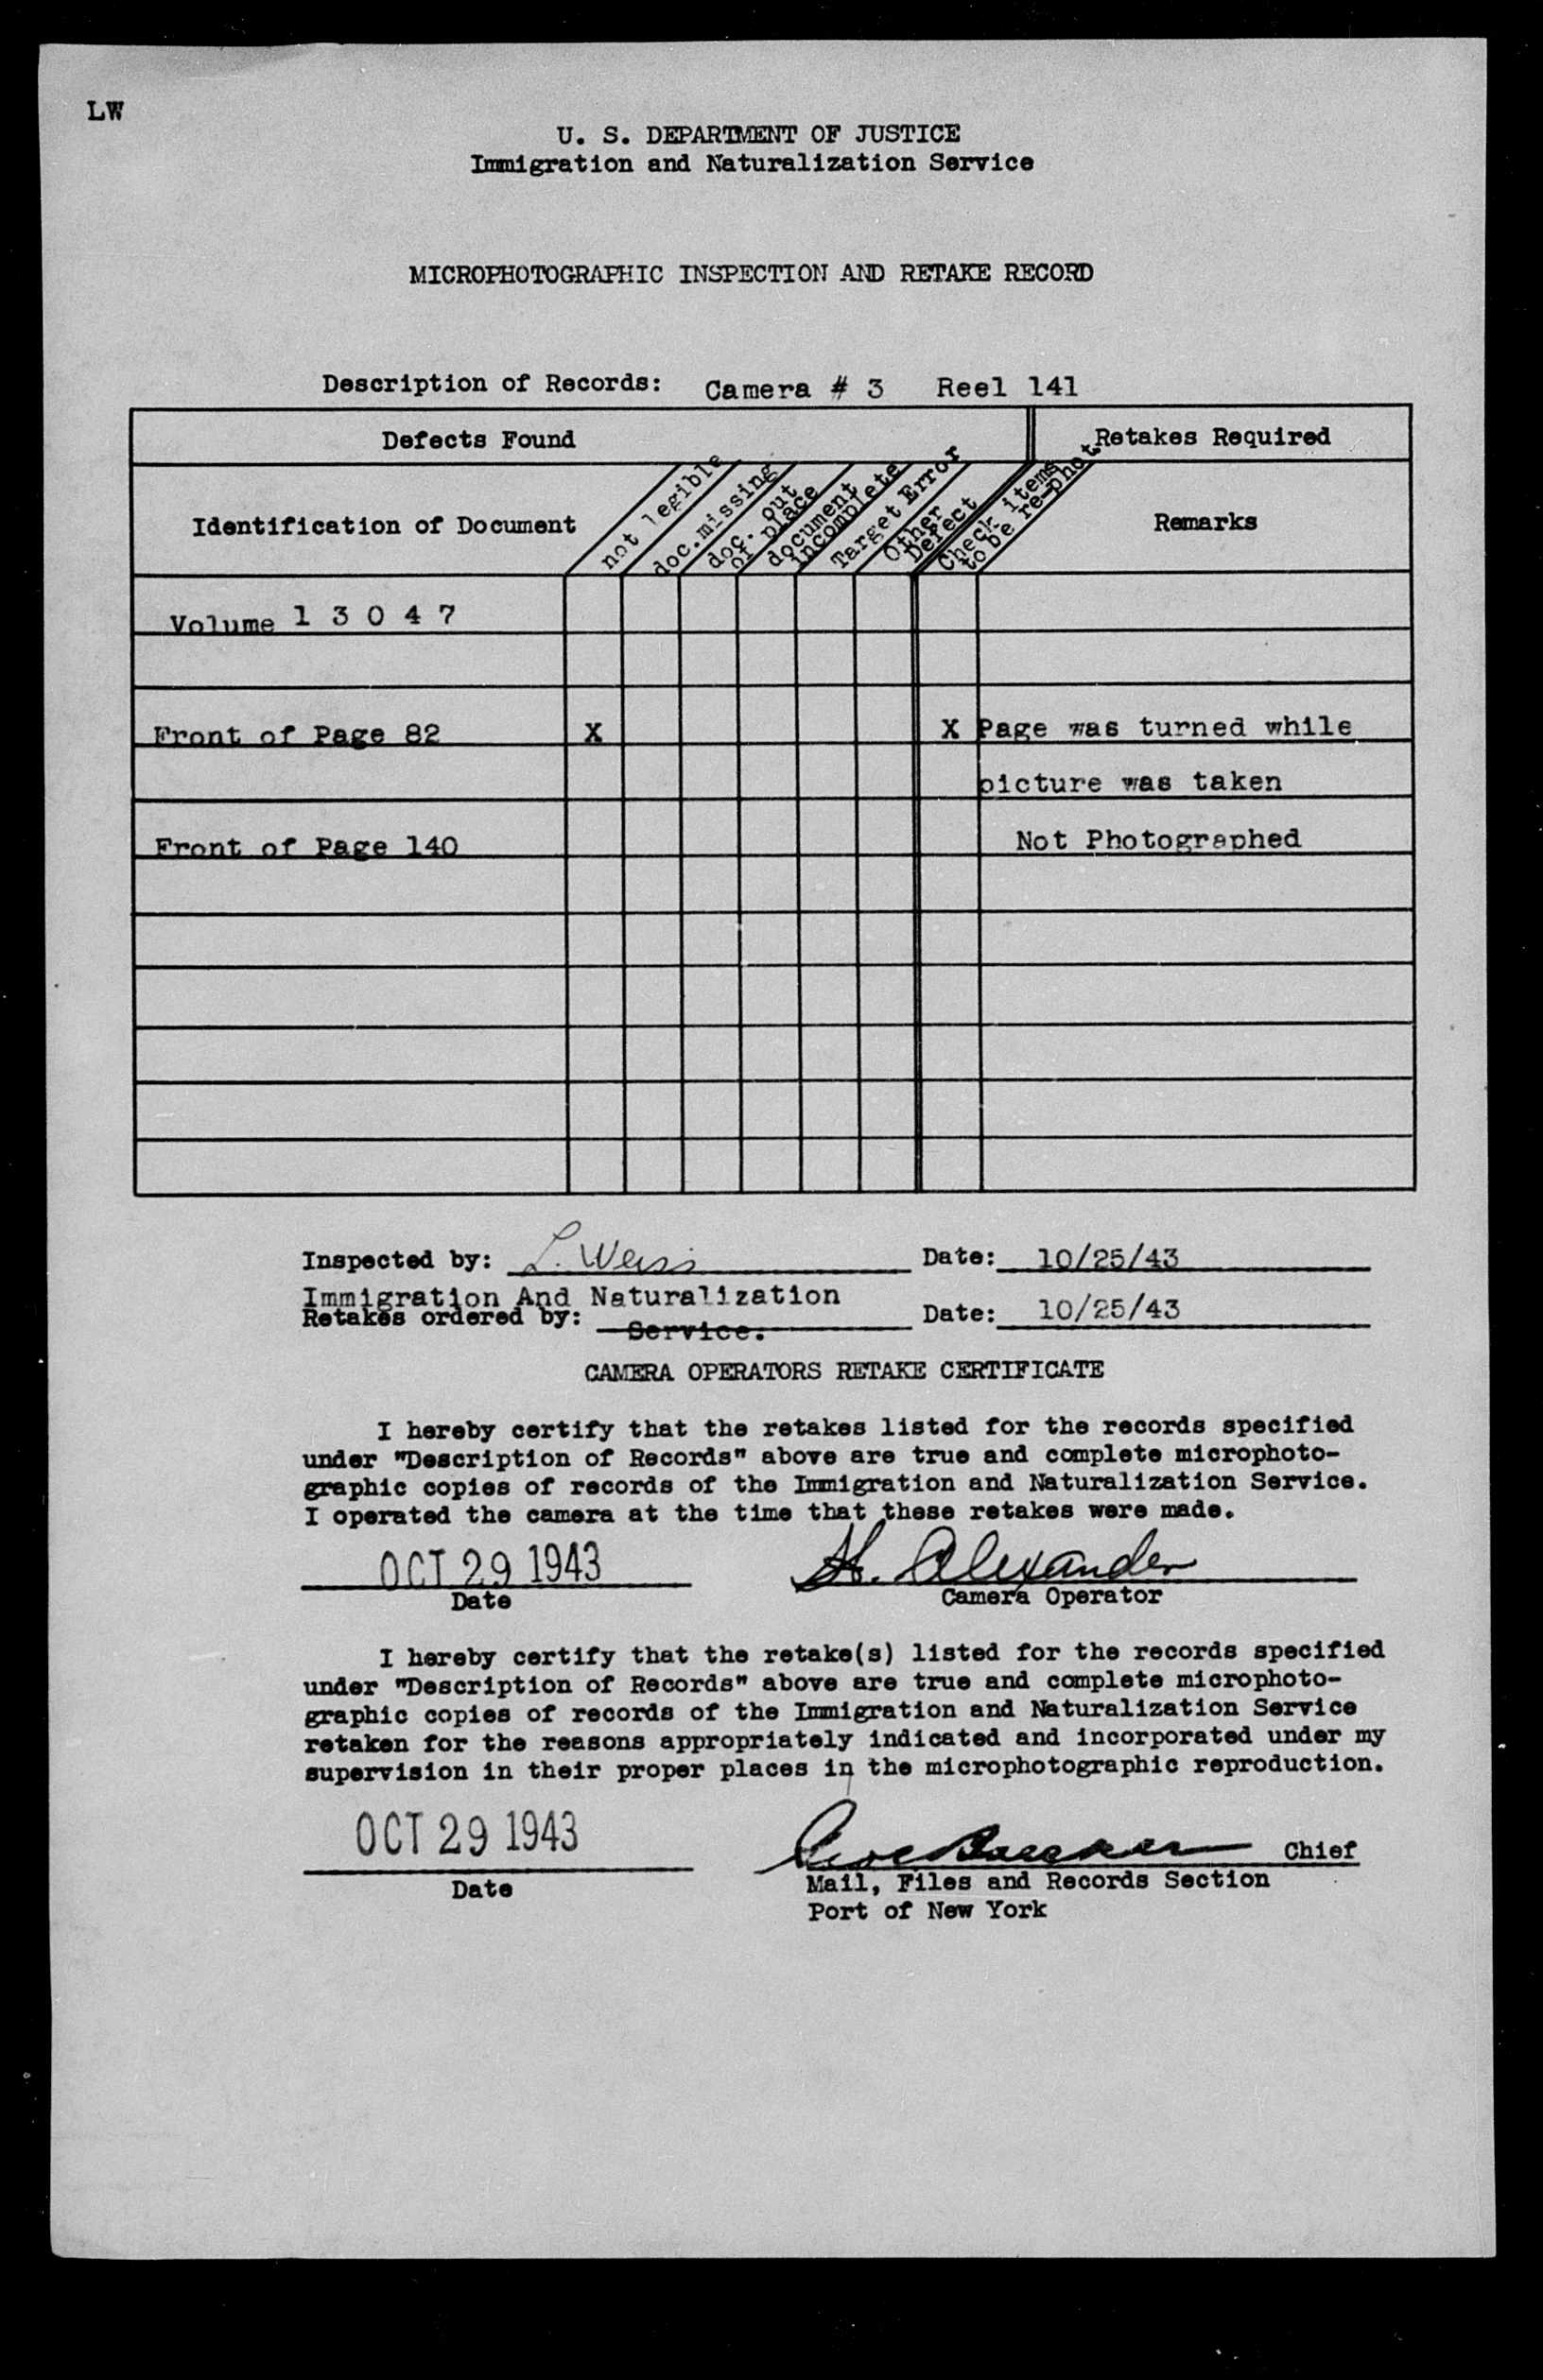 LW
U. S. DEPARTMENT OF JUSTICE
Immigration and Naturalization Service
MICROPHOTOGRAPHIC INSPECTION AND RETAKE RECORD
Description of Records: Camera # 3 Reel 141
Defects Found
Retakes Required
Identification of Document
not legible
doc. missing
doc. out
of place
document
incomplete
Target Error
Other
Defect
Check items
to be re-phot.
Remarks
Volume 1 3 0 4 7
Front of Page 82 X X Page was turned while
picture was taken
Front of Page 140 Not Photographed
Inspected by: L. Weiss Date: 10/25/43
Immigration And Naturalization
Retakes ordered by: Service. Date: 10/25/43
CAMERA OPERATORS RETAKE CERTIFICATE
I hereby certify that the retakes listed for the records specified
under "Description of Records" above are true and complete microphoto-
graphic copies of records of the Immigration and Naturalization Service.
I operated the camera at the time that these retakes were made.
OCT 29 1943 H. Alexander
Date Camera Operator
I hereby certify that the retake(s) listed for the records specified
under "Description of Records" above are true and complete microphoto-
graphic copies of records of the Immigration and Naturalization Service
retaken for the reasons appropriately indicated and incorporated under my
supervision in their proper places in the microphotographic reproduction.
OCT 29 1943 Chief
Date Mail, Files and Records Section
Port of New York